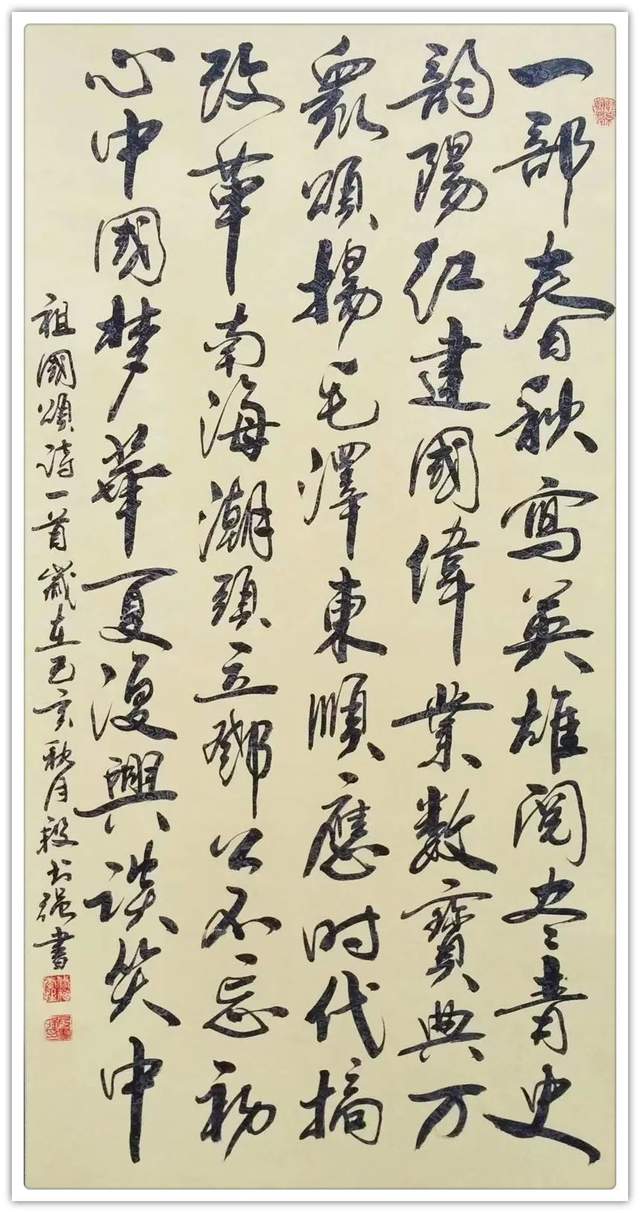 一部春秋寫英雄閱尽青史
韵陽红建國偉業数寶典万
眾頌揚毛澤東順應时代搞
改革南海潮頭立鄧公不忘初
心中國梦華夏復興談笑中
祖國頌詩一首歲在己亥秋月段士强書